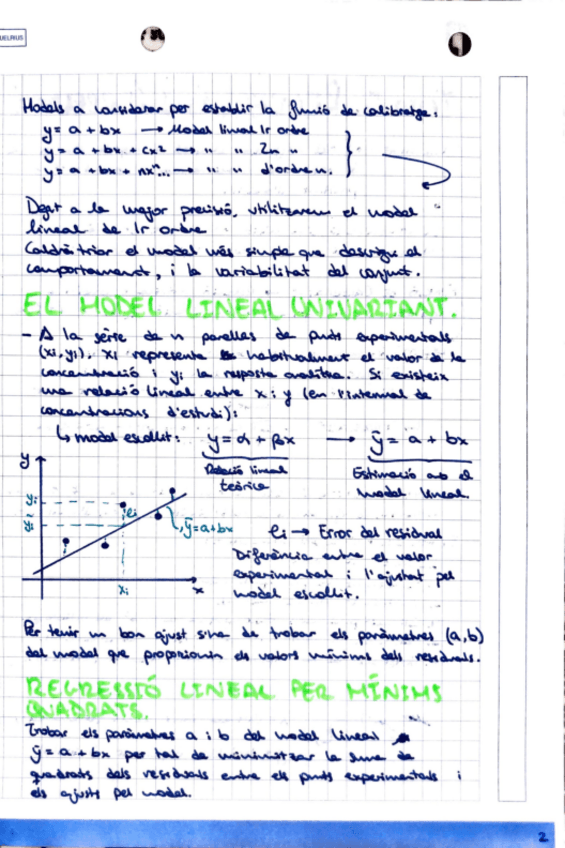 Models a considerar per establir la funció de calibratge:
y = a + bx → Model lineal 1r ordre
y = a + bx + cx² → " " 2n "
y = a + bx + nxⁿ... → " " d'ordre n.
Degut a la major precisió, utilitzarem el model
lineal de 1r ordre
Caldrà triar el model més simple que descrigui el
comportament, i la variabilitat del conjunt.
EL MODEL LINEAL UNIVARIANT.
- A la sèrie de n parelles de punts experimentals
(xi, yi), xi representa habitualment el valor de la
concentració i yi la resposta analítica. Si existeix
una relació lineal entre x i y (en l'interval de
concentracions d'estudi):
↳ model escollit: y = α + βx → ŷ = a + bx
Relació lineal
teòrica
Estimació amb el
model lineal.
y
yi
ŷi
ei
ŷ = a + bx
xi
x
ei → Error del residual
Diferència entre el valor
experimental i l'ajustat pel
model escollit.
Per tenir un bon ajust s'ha de trobar els paràmetres (a,b)
del model que proporionin els valors mínims dels residuals.
REGRESSIÓ LINEAL PER MÍNIMS
QUADRATS.
Trobar els paràmetres a i b del model lineal
ŷ = a + bx per tal de minimitzar la suma de
quadrats dels residuals entre els punts experimentals i
els ajusts pel model.
2